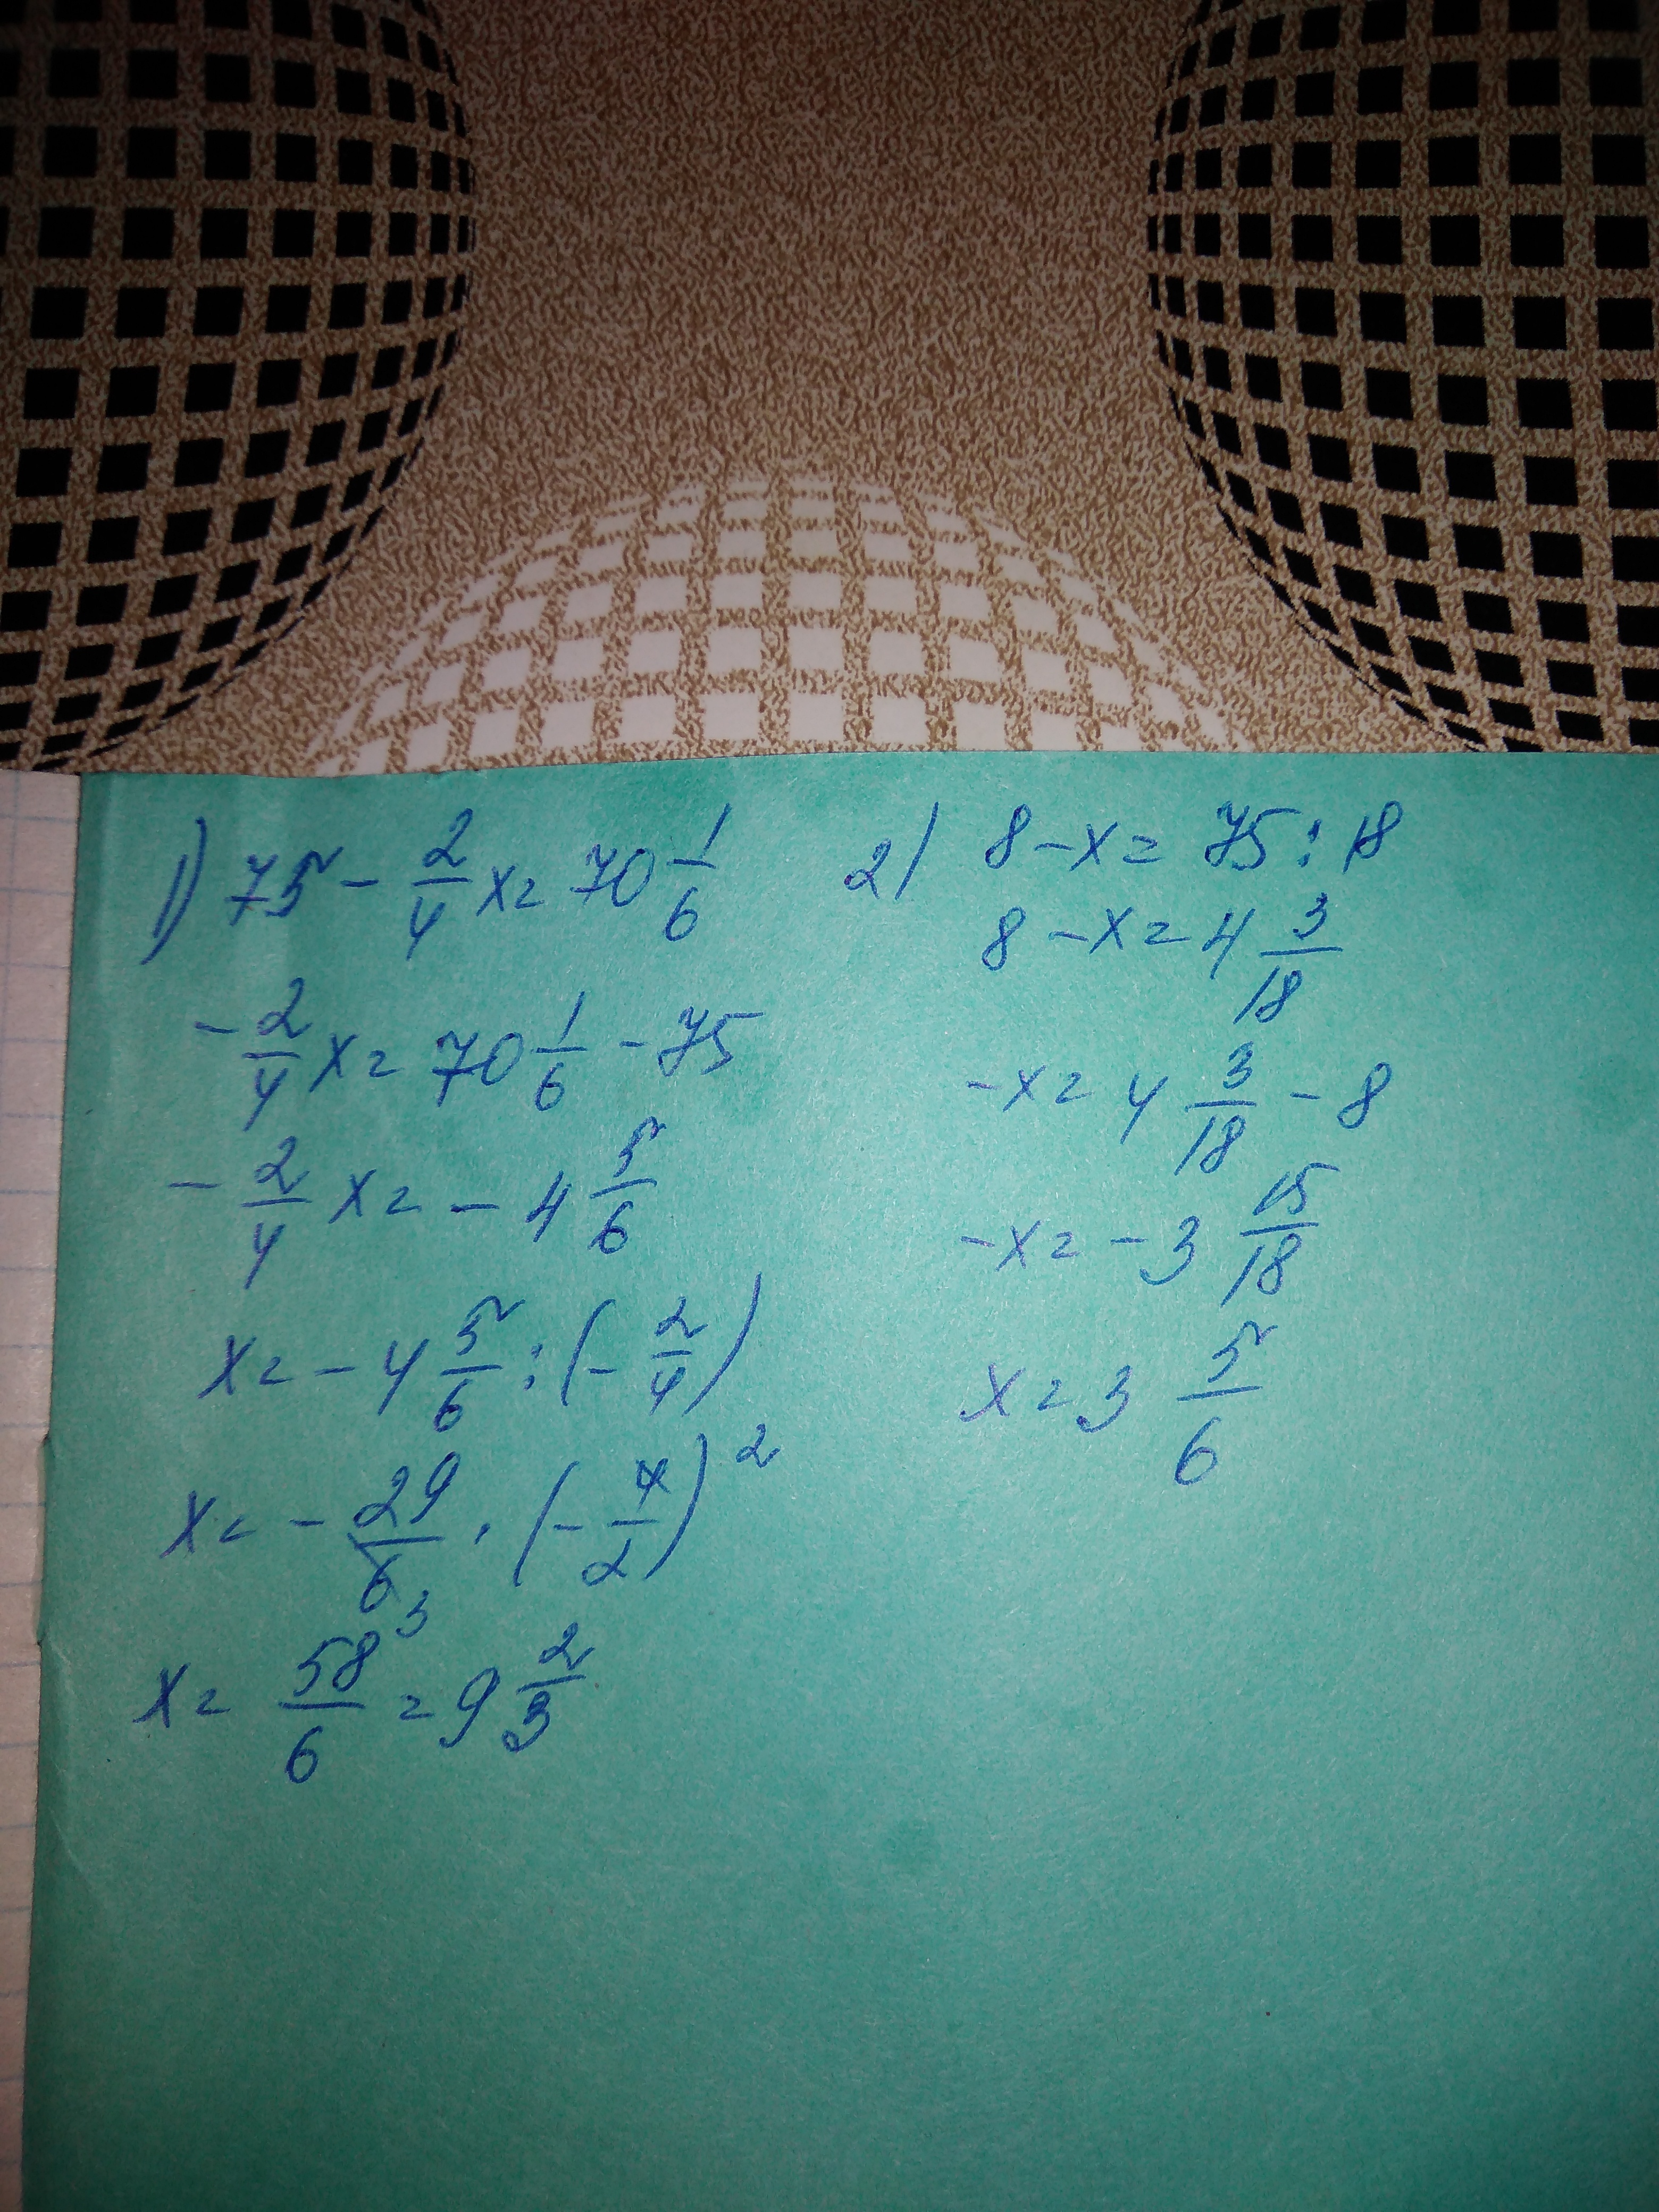 1) 75 - 2/4 x = 70 1/6
- 2/4 x = 70 1/6 - 75
- 2/4 x = - 4 5/6
x = - 4 5/6 : (- 2/4)
x = - 29/6 3 · (- 4/2) 2
x = 58/6 = 9 2/3
2) 8 - x = 75 : 18
8 - x = 4 3/18
- x = 4 3/18 - 8
- x = - 3 15/18
x = 3 5/6